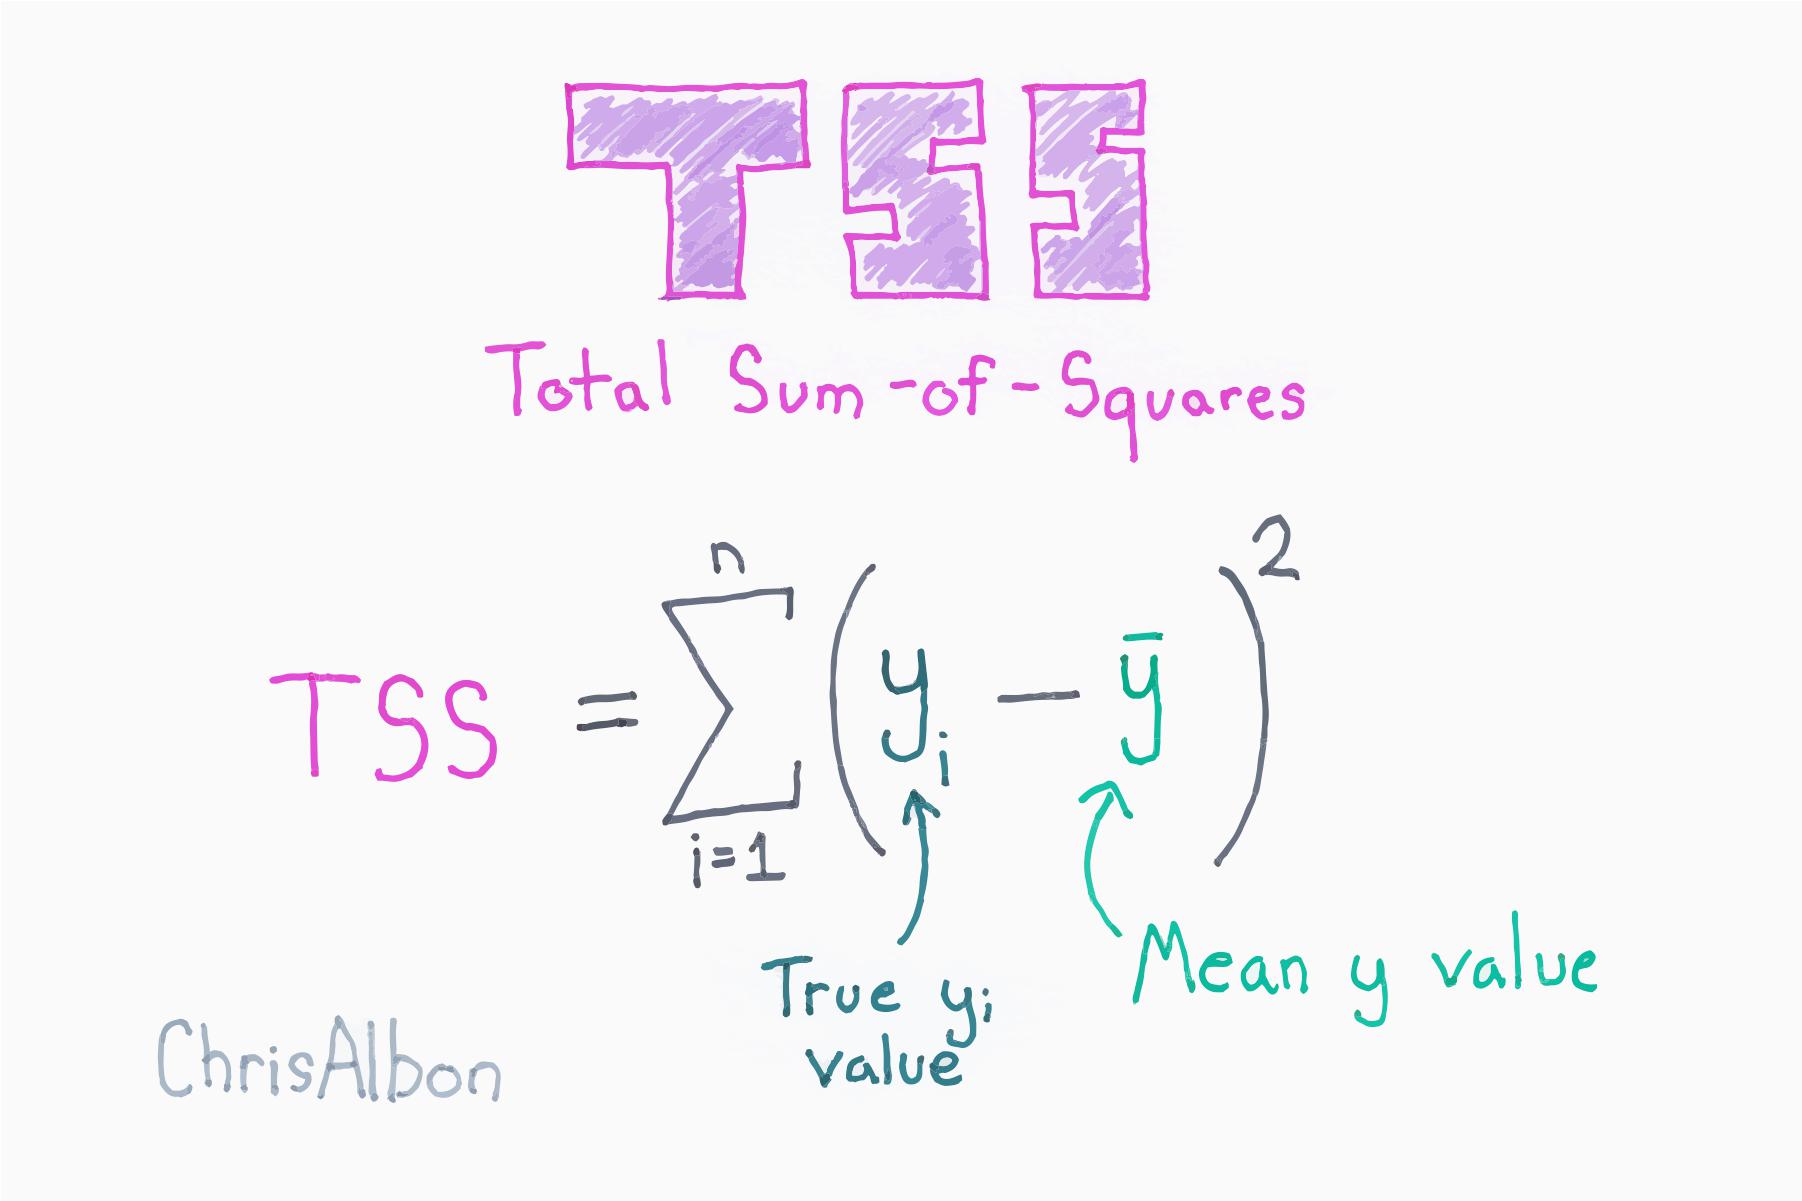 TSS
Total Sum-of-Squares
n
TSS = ∑ (y_i − ȳ)²
i=1
True y_i
value
Mean y value
ChrisAlbon